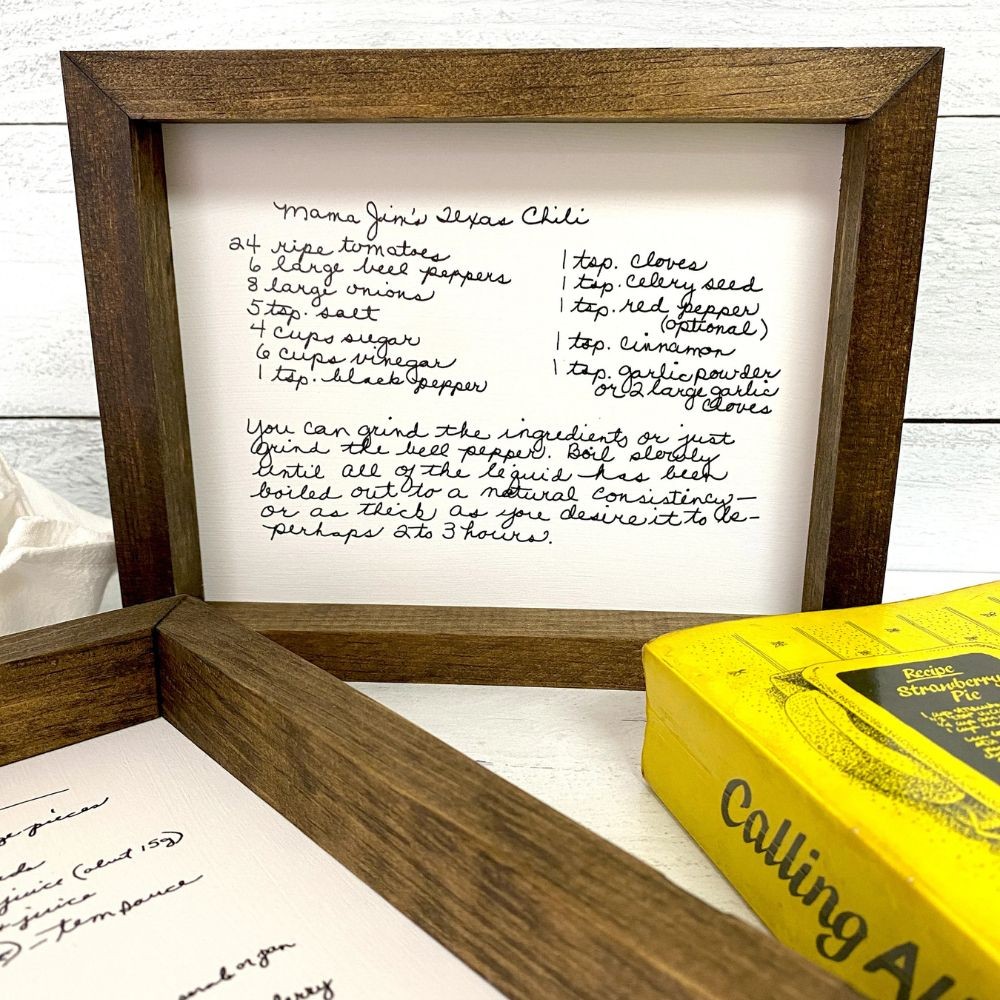 Mama Jim's Texas Chili
24 ripe tomatoes
6 large bell peppers
8 large onions
5 tsp. salt
4 cups sugar
6 cups vinegar
1 tsp. black pepper
1 tsp. cloves
1 tsp. celery seed
1 tsp. red pepper
(optional)
1 tsp. cinnamon
1 tsp. garlic powder
or 2 large garlic
cloves
You can grind the ingredients or just
grind the bell pepper. Boil slowly
until all of the liquid has been
boiled out to a natural consistency—
or as thick as you desire it to be—
perhaps 2 to 3 hours.
pieces
juice (about 15g)
juice
Recipe
Strawberry
Pie
Calling